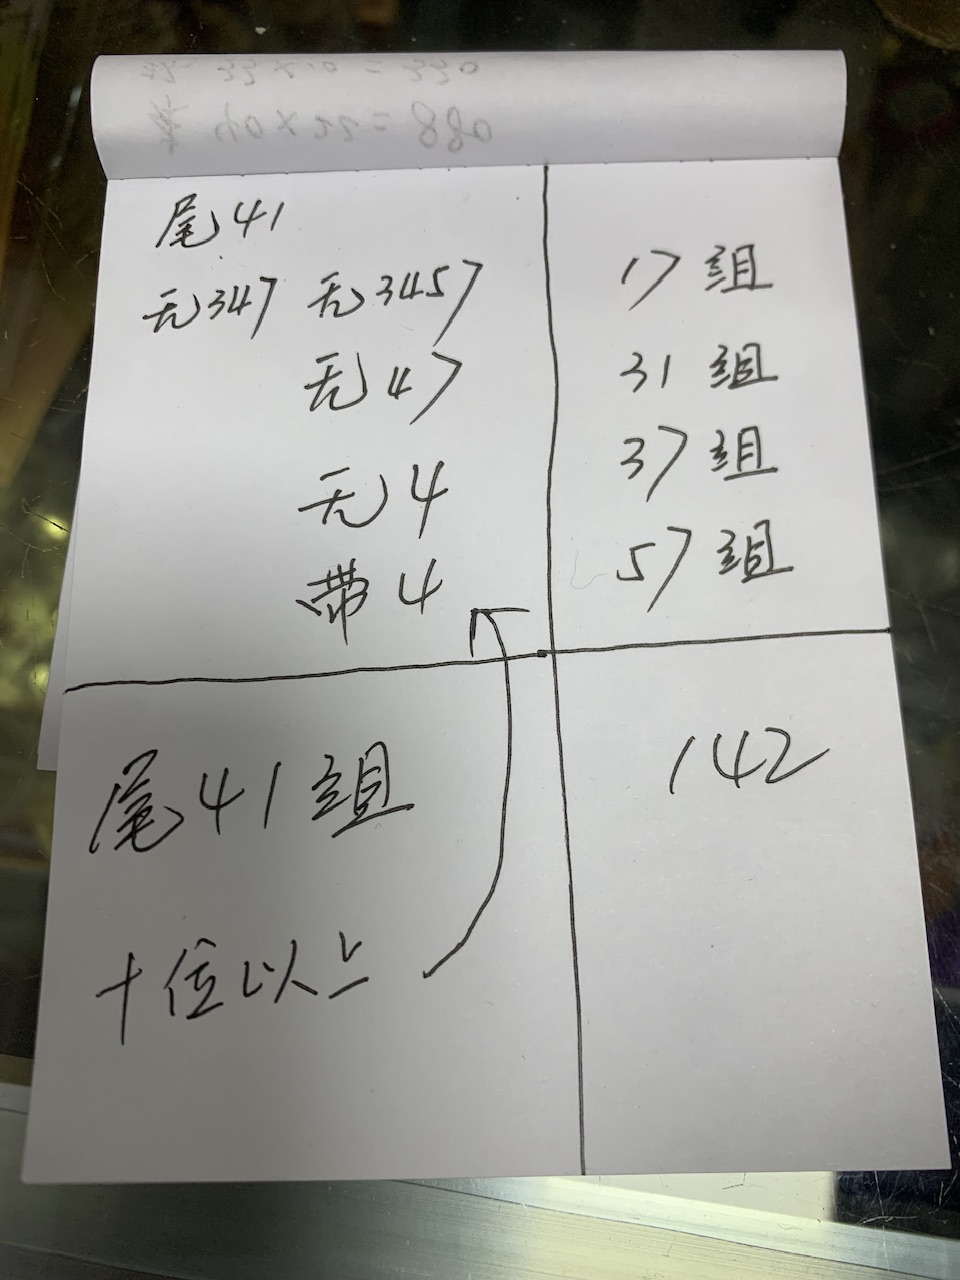 尾41
无347 无3457
无47
无4
带4
17组
31组
37组
57组
尾41组
十位以上
142